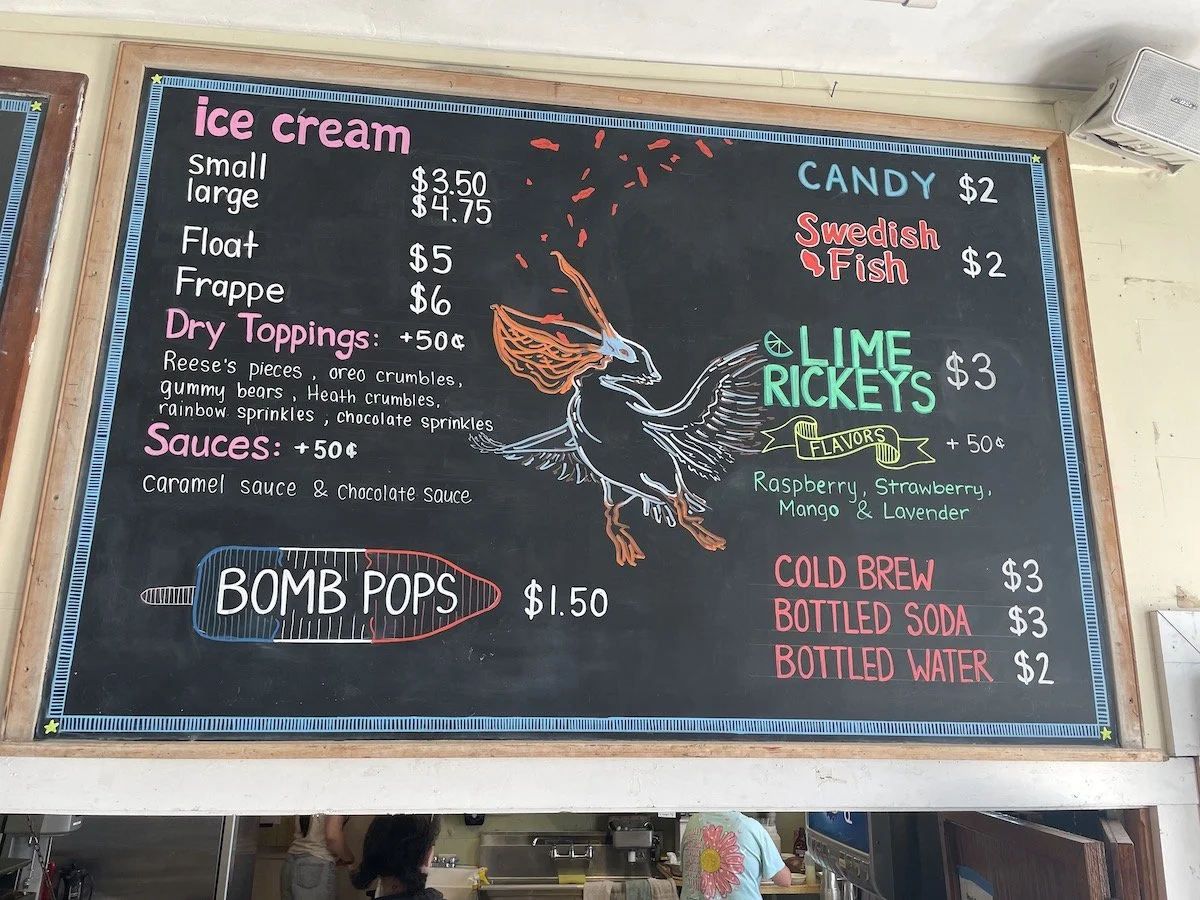 ice cream
small $3.50
large $4.75
Float $5
Frappe $6
Dry Toppings: +50¢
Reese's pieces, oreo crumbles,
gummy bears, Heath crumbles,
rainbow sprinkles, chocolate sprinkles
Sauces: +50¢
caramel sauce & chocolate sauce
BOMB POPS $1.50
CANDY $2
Swedish
Fish $2
LIME
RICKEYS $3
FLAVORS +50¢
Raspberry, Strawberry,
Mango & Lavender
COLD BREW $3
BOTTLED SODA $3
BOTTLED WATER $2